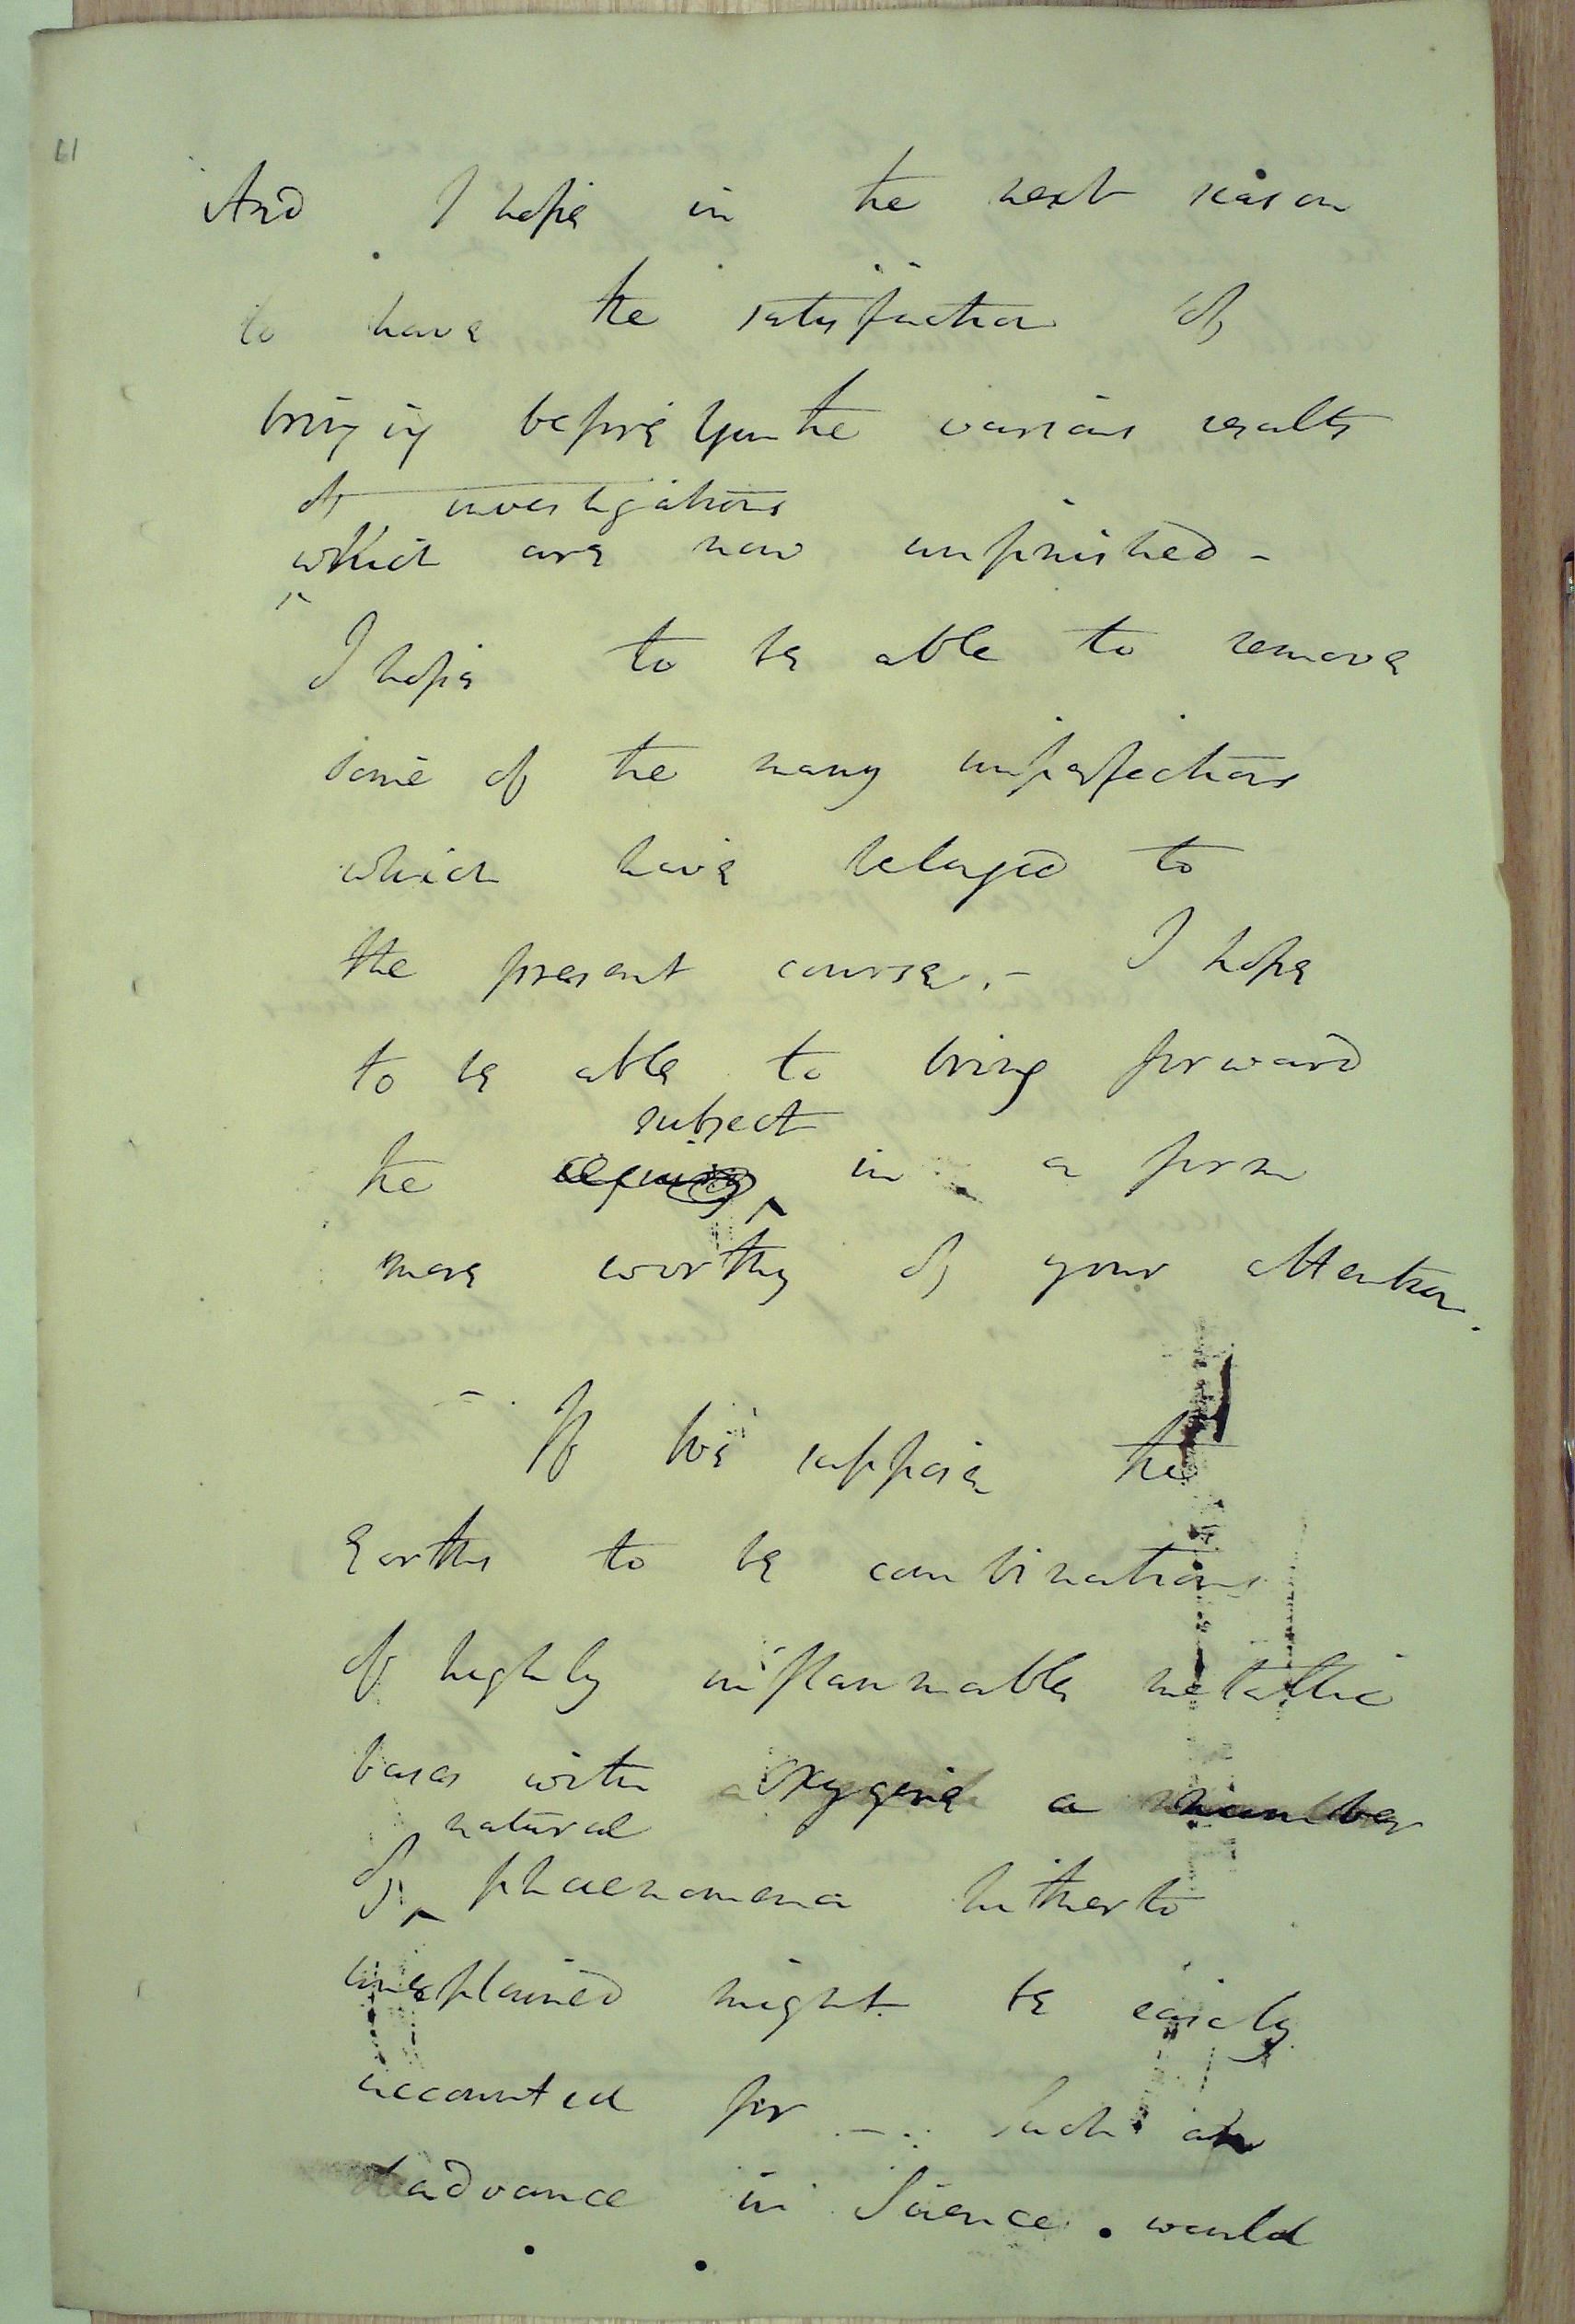 61
And I hope in the next season
to have the satisfaction of
bringing before you the various results
of investigations
which are now unfinished -
I hope to be able to remove
some of the many imperfections
which have belonged to
the present course. - I hope
to be able to bring forward
subject
the in a form
more worthy of your attention.
- If we suppose the
Earths to be combinations
of highly inflammable metallic
bases with oxygene a number
natural
of phaenomena hitherto
unexplained might be easily
accounted for - . Such an
advance in Science would